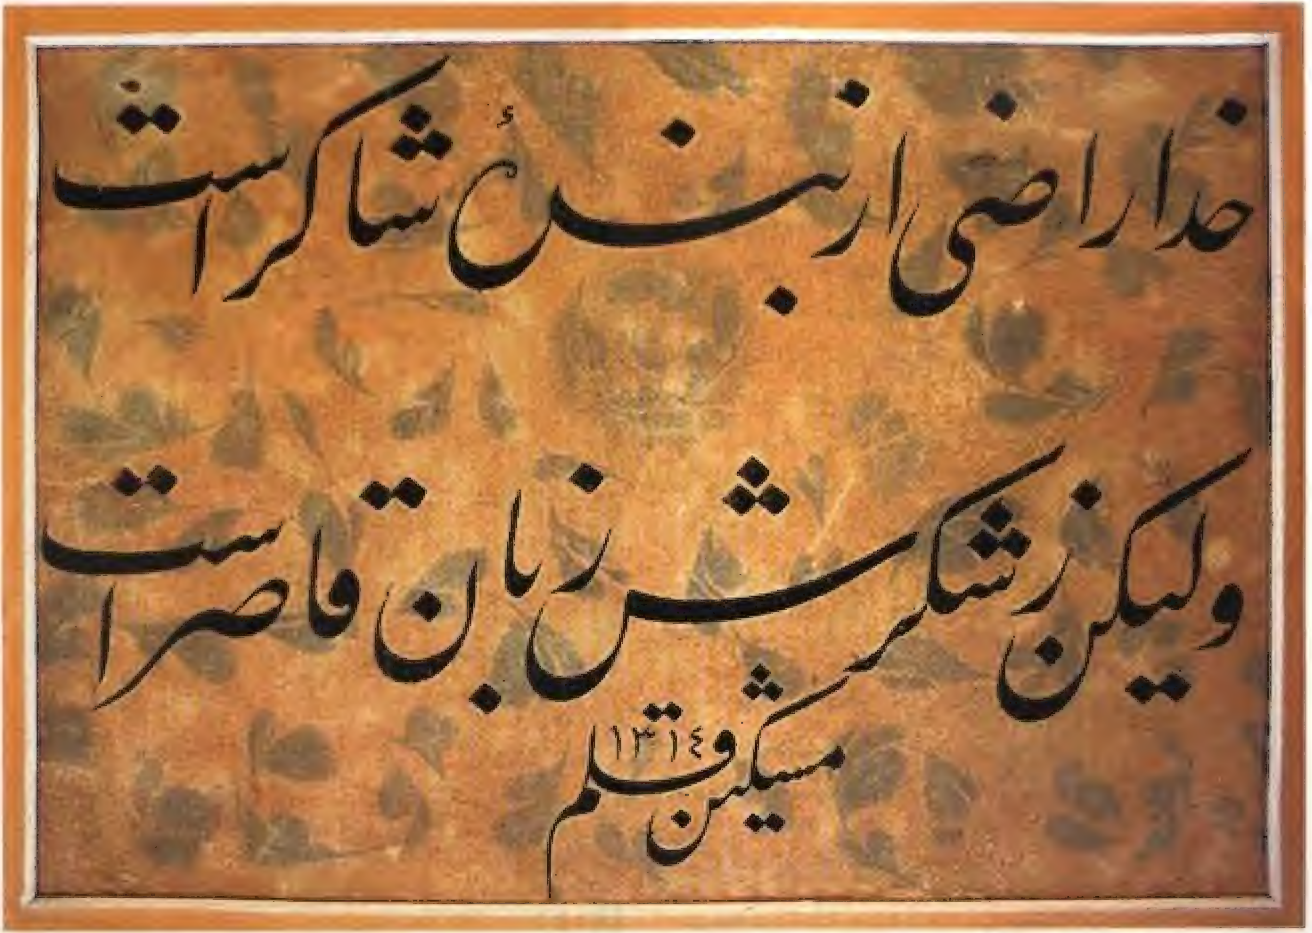 خدا راضی از بندهٔ شاکر است
ولیکن ز شکرش زبان قاصر است
مشکین قلم ١٣١٤